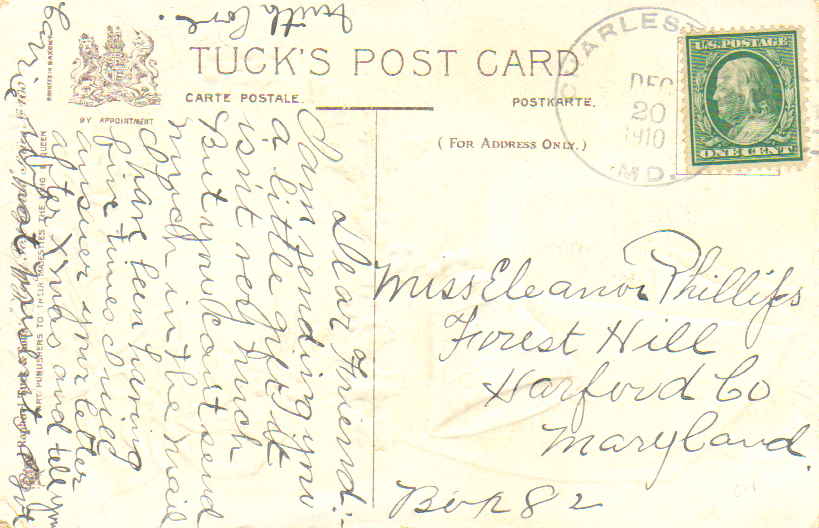 TUCK'S POST CARD
CARTE POSTALE.
POSTKARTE.
(FOR ADDRESS ONLY.)
BY APPOINTMENT
CHARLEST
DEC
20
1910
MD.
U.S. POSTAGE
ONE CENT
Miss Eleanor Phillips
Forest Hill
Harford Co
Maryland.
Box 82
Dear Friend:-
I am sending you
a little gift. It
isn't very much
But you can't send
much in the mail
I have been having
fine times. I will
answer your letter
after Xmas and tell you
Carrie
ART PUBLISHERS TO THEIR MAJESTIES THE KING & QUEEN
PRINTED IN SAXONY